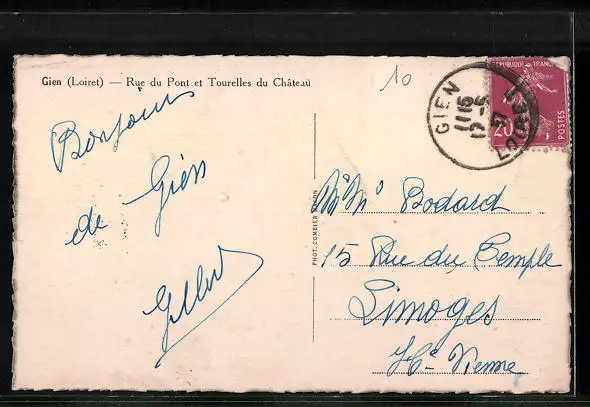 Gien (Loiret) — Rue du Pont et Tourelles du Château
10
RÉPUBLIQUE FRANC
20
POSTES
GIEN
1115
17-5
37
LOIRET
Bonjour
de Gien
PHOT. COMBIER MACON
Mr Mme Bodard
15 Rue du Temple
Limoges
Hte Vienne